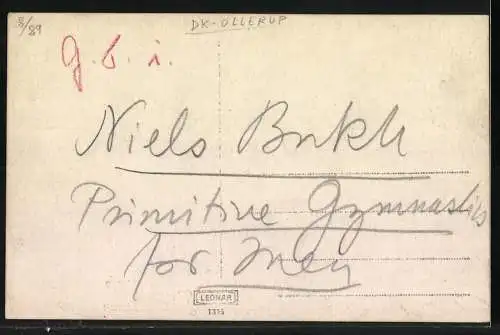 8/89
DK-OLLERUP
g. b. i.
Niels Bukh
Primitive Gymnastics
for Men
LEONAR
1315